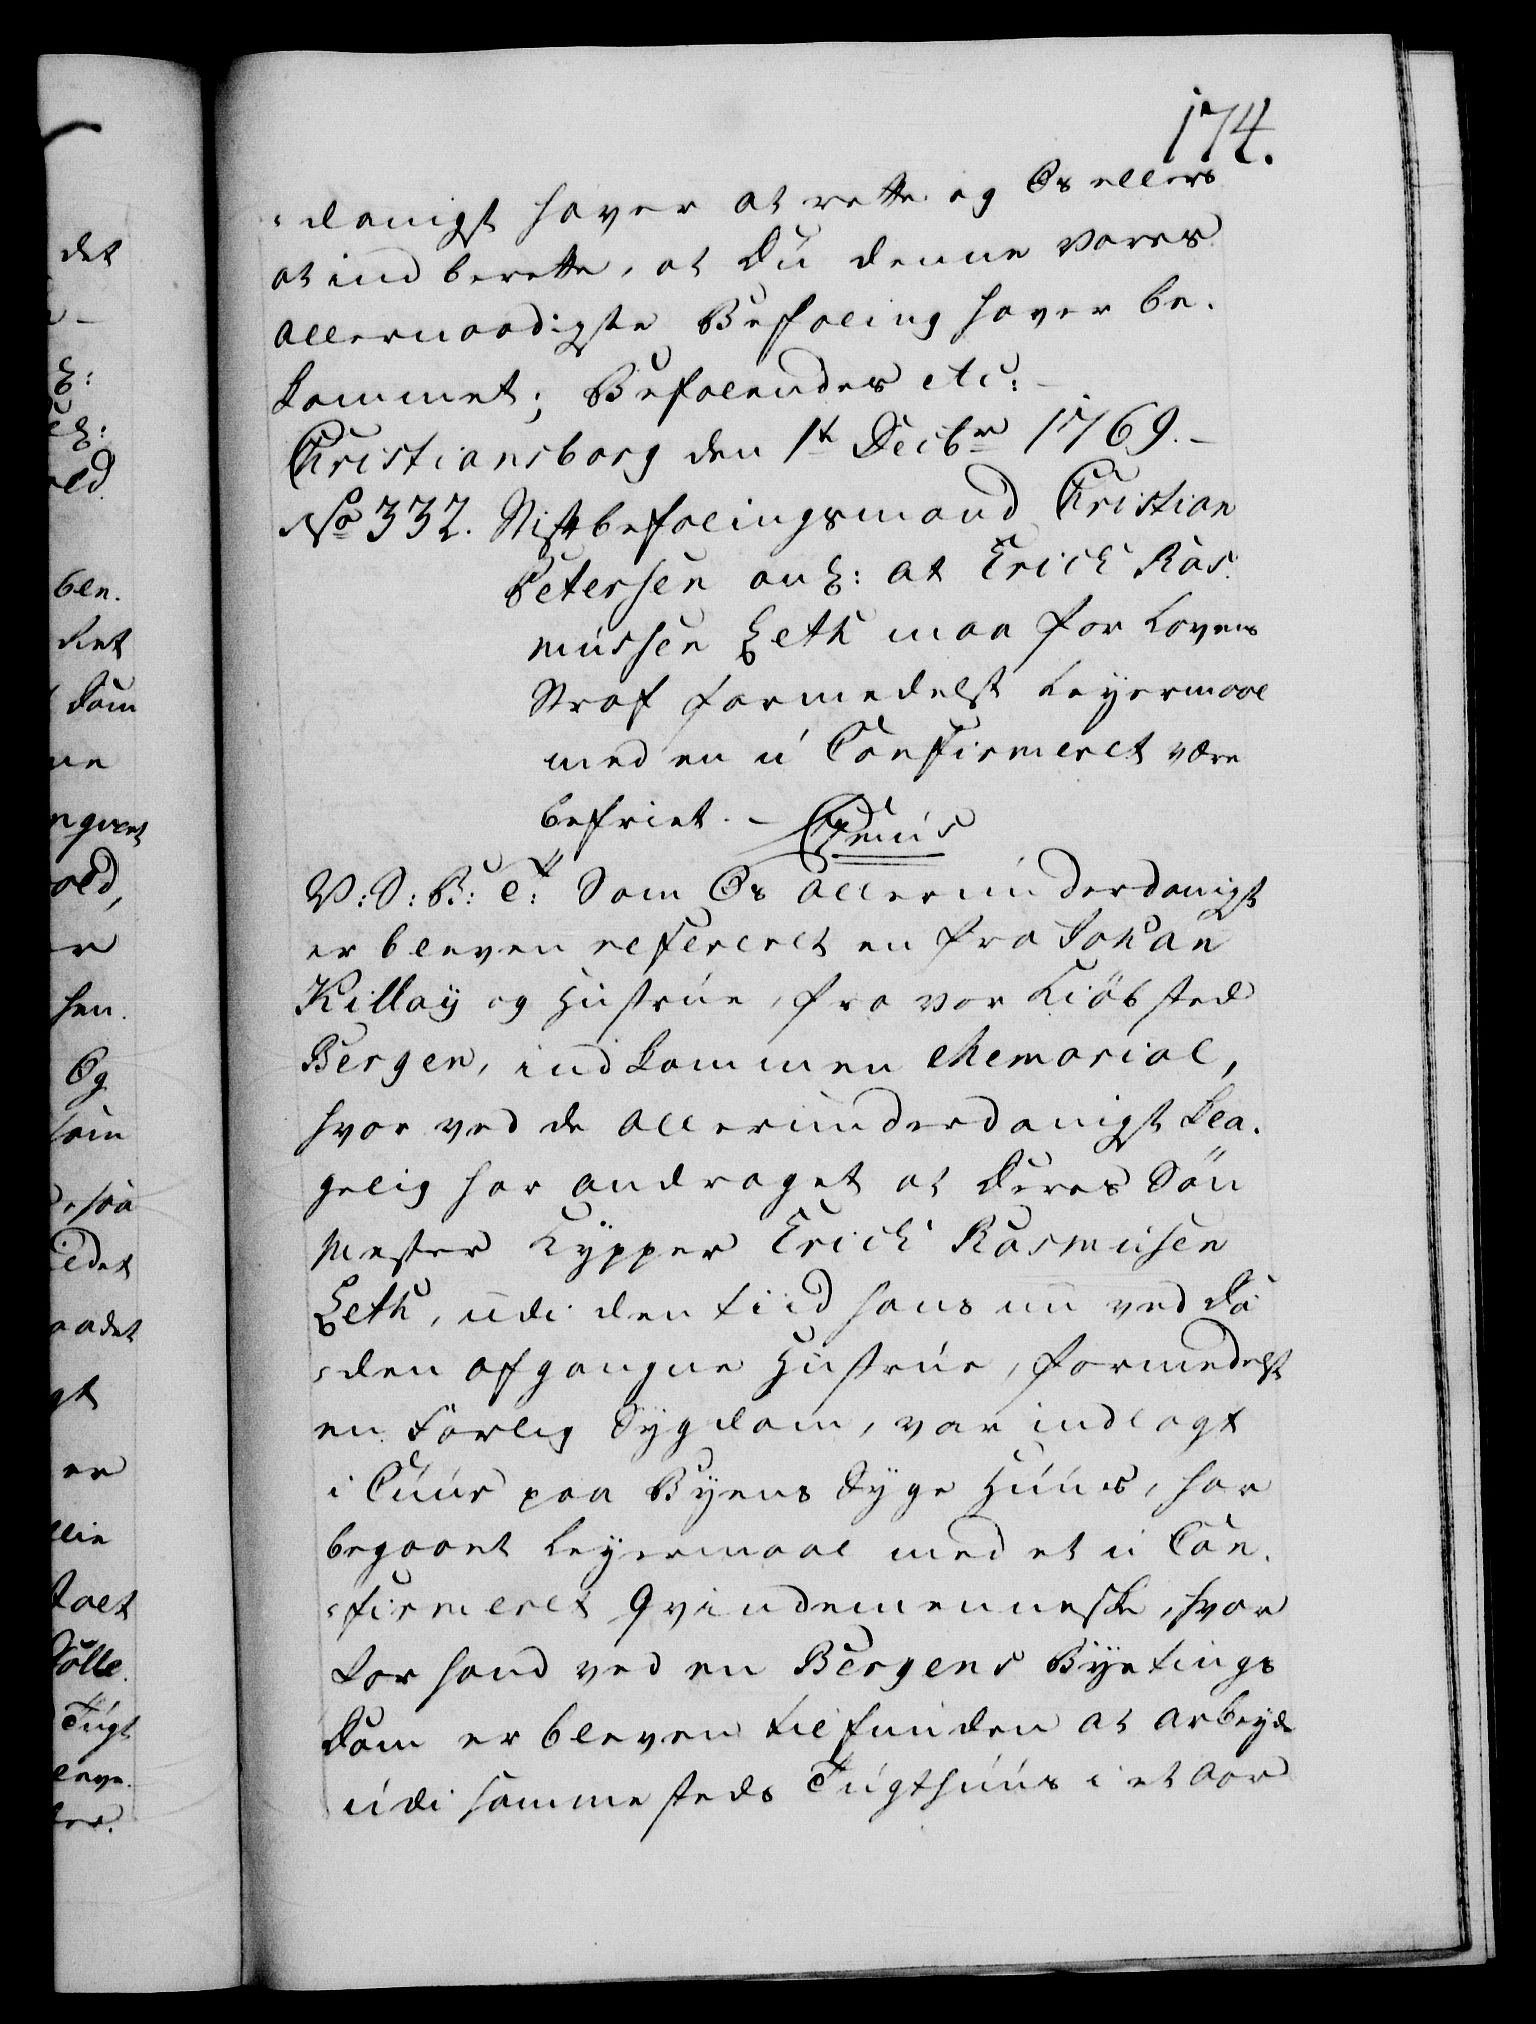 174.
-danigst haver at rette og Os ellers
at ind berette, at Du denne vores
allernaadigste Befaling haver be-
kommet; Befalendes etc:
Christiansborg den 1t Decbr 1769.
No 332. Stiftbefalingsmand Christian
Petersen an: at Erich Ras-
mussen Leth maa for Lovens
Straf formedelst Leyermaal
med en u Confirmeret være
befriet. - Genus
V: S: B: T: Som Os allerunderdanigst
er bleven refereret en fra Johan
Killoÿ og Hustrue, fra vor Kiöbsted
Bergen, indkommen Memorial,
hvor ved de allerunderdanigst kla-
gelig har andraget at Deres Sön
Mester Kÿpper Erich Rasmusen
Leth, udi den tiid hans nu ved Dö
-den afgangne Hustrue, formedelst
en farlig Sÿgdom, var indlagt
i Cuur paa Bÿens Sÿge Huus, har
begaaet Leÿermaal med et u Con-
-firmeret Qvindemenneske, hvor
for hand ved en Bergens Bÿetings
Dom er bleven tilfunden at arbeyde
udi sammesteds Tugthuus i et Aar
det
ben.
Ret
Dom
old,
er
sen.
Og
som
gt
er
Tugt